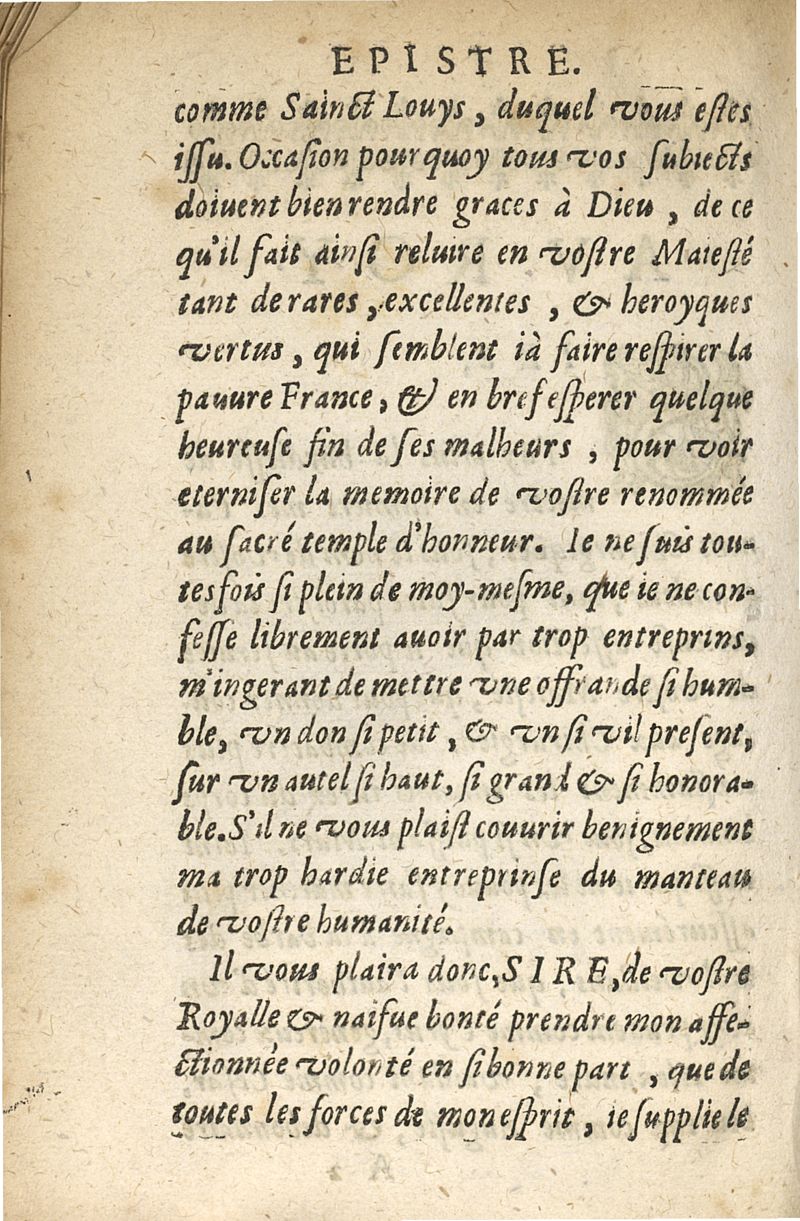 EPISTRE.
comme Sainct Louys, duquel vous estes
issu. Occasion pourquoy tous vos subiects
doiuent bien rendre graces à Dieu, de ce
qu'il fait ainsi reluire en vostre Maiesté
tant de rares, excellentes, & heroyques
vertus, qui semblent ià faire respirer la
pauure France, & en bref esperer quelque
heureuse fin de ses malheurs, pour voir
eterniser la memoire de vostre renommée
au sacré temple d'honneur. Ie ne suis tou-
tesfois si plein de moy-mesme, que ie ne con-
fesse librement auoir par trop entreprins,
m'ingerant de mettre vne offrande si hum-
ble, vn don si petit, & vn si vil present,
sur vn autel si haut, si grand & si honora-
ble. S'il ne vous plaist couurir benignement
ma trop hardie entreprinse du manteau
de vostre humanité.
Il vous plaira donc, SIRE, de vostre
Royalle & naifue bonté prendre mon affe-
ctionnée volonté en si bonne part, que de
toutes les forces de mon esprit, ie supplie le